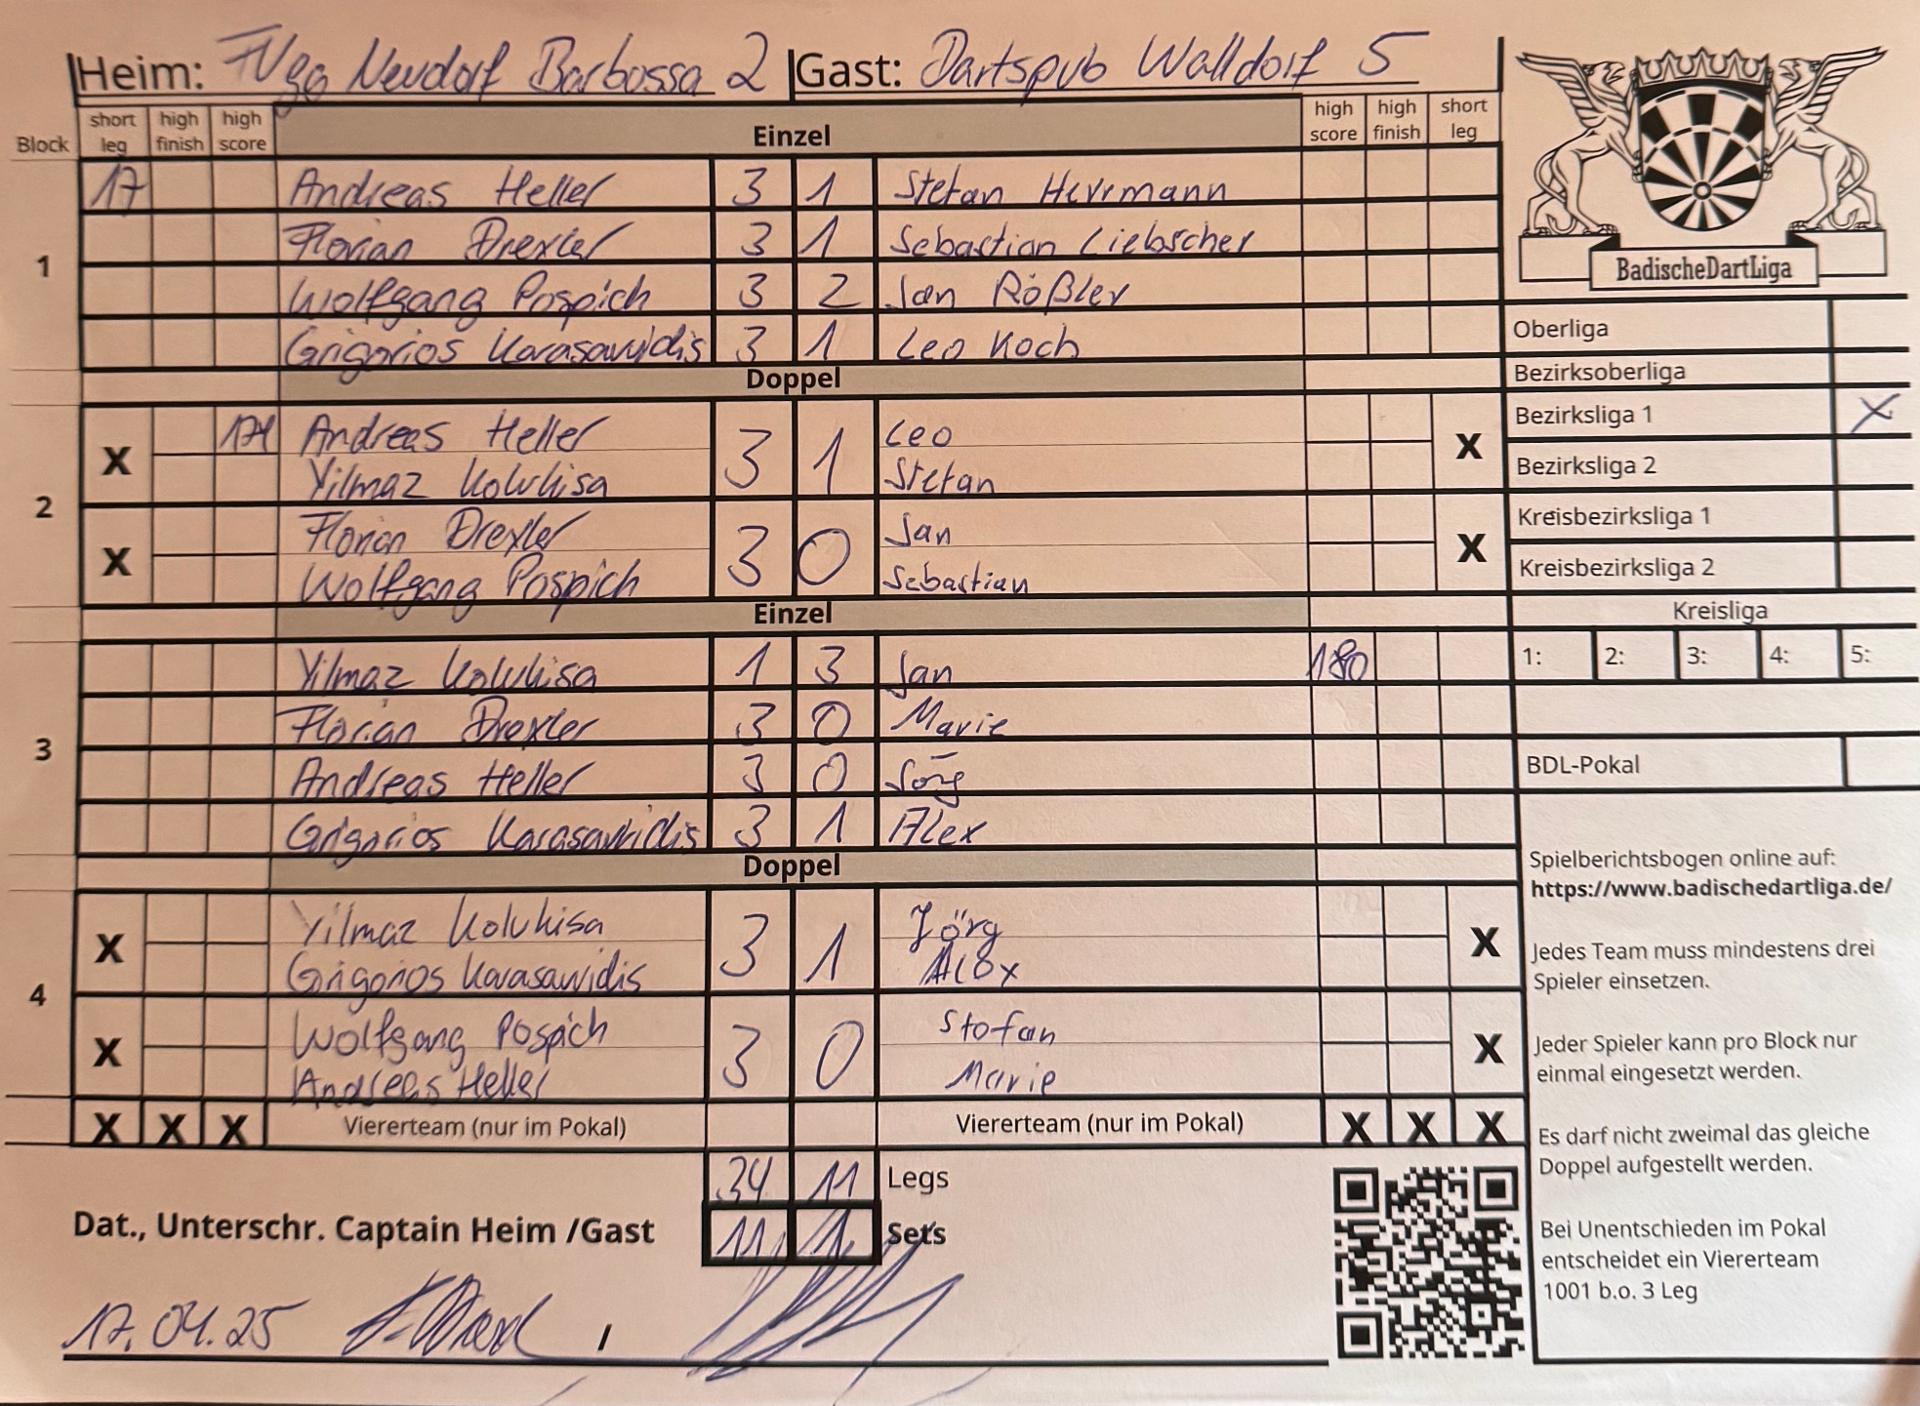 Heim: FVgg Neudorf Barbossa 2 Gast: Dartspub Walldorf 5
Block short leg high finish high score Einzel high score high finish short leg
1
17 Andreas Heller 3 1 Stefan Herrmann
Florian Drexler 3 1 Sebastian Liebscher
Wolfgang Pospich 3 2 Jan Rößler
Grigorios Karasavvidis 3 1 Leo Koch
Doppel
2
X 171 Andreas Heller 3 1 Leo X
Yilmaz Kolukisa Stefan
X Florian Drexler 3 0 Jan X
Wolfgang Pospich Sebastian
Einzel
3
Yilmaz Kolukisa 1 3 Jan 180
Florian Drexler 3 0 Marie
Andreas Heller 3 0 Jörg
Grigorios Karasavvidis 3 1 Alex
Doppel
4
X Yilmaz Kolukisa 3 1 Jörg X
Grigorios Karasavvidis Alex
X Wolfgang Pospich 3 0 Stefan X
Andreas Heller Marie
X X X Viererteam (nur im Pokal) Viererteam (nur im Pokal) X X X
34 11 Legs
Dat., Unterschr. Captain Heim /Gast 11 1 Sets
17.04.25 /
BadischeDartLiga
Oberliga
Bezirksoberliga
Bezirksliga 1 X
Bezirksliga 2
Kreisbezirksliga 1
Kreisbezirksliga 2
Kreisliga
1: 2: 3: 4: 5:
BDL-Pokal
Spielberichtsbogen online auf:
https://www.badischedartliga.de/
Jedes Team muss mindestens drei
Spieler einsetzen.
Jeder Spieler kann pro Block nur
einmal eingesetzt werden.
Es darf nicht zweimal das gleiche
Doppel aufgestellt werden.
Bei Unentschieden im Pokal
entscheidet ein Viererteam
1001 b.o. 3 Leg